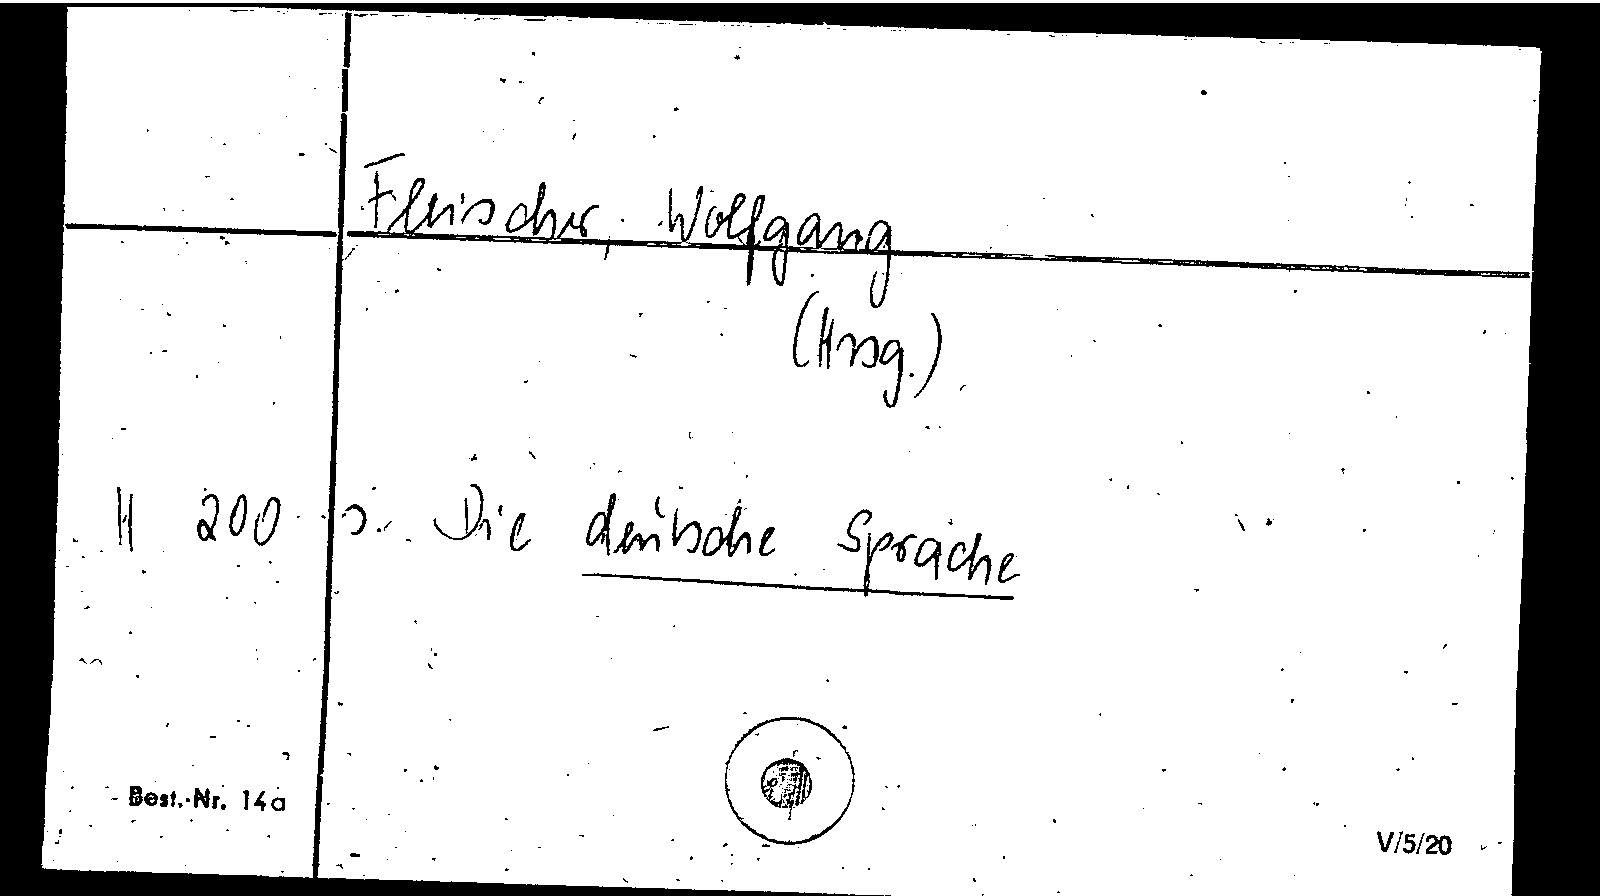 Fleischer, Wolfgang
(Hrsg.)
H 200 s. Die deutsche Sprache
Best.-Nr. 14a
V/5/20